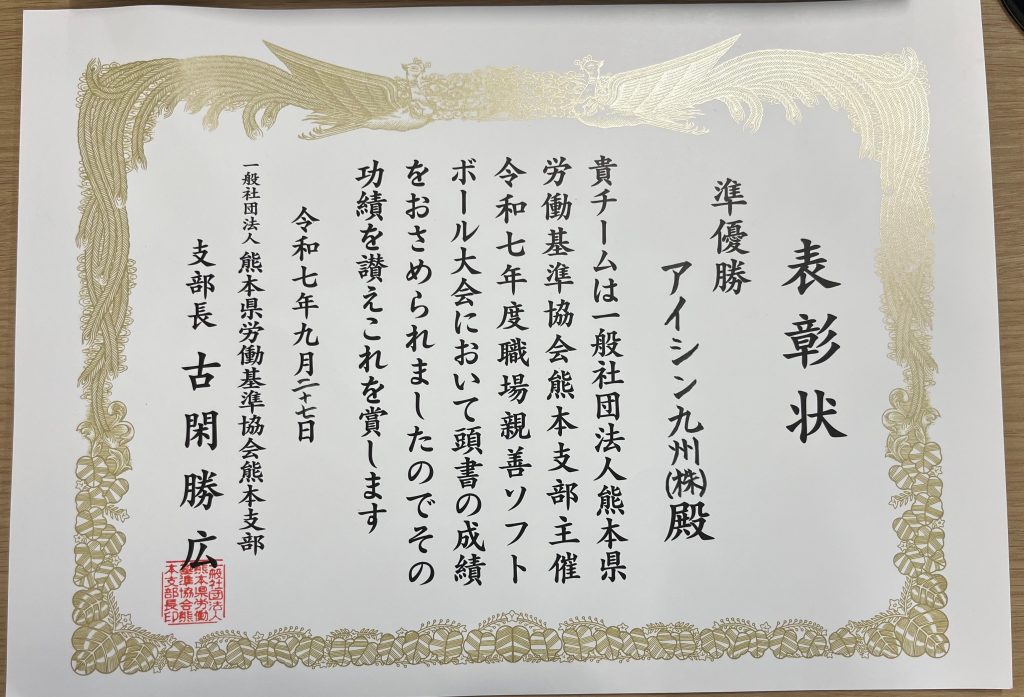 表彰状
準優勝
アイシン九州(株)殿
貴チームは一般社団法人熊本県
労働基準協会熊本支部主催
令和七年度職場親善ソフト
ボール大会において頭書の成績
をおさめられましたのでその
功績を讃えこれを賞します
令和七年九月二十七日
一般社団法人 熊本県労働基準協会熊本支部
支部長 古閑勝広
一般社団法人
熊本県労働
基準協会熊
本支部長印